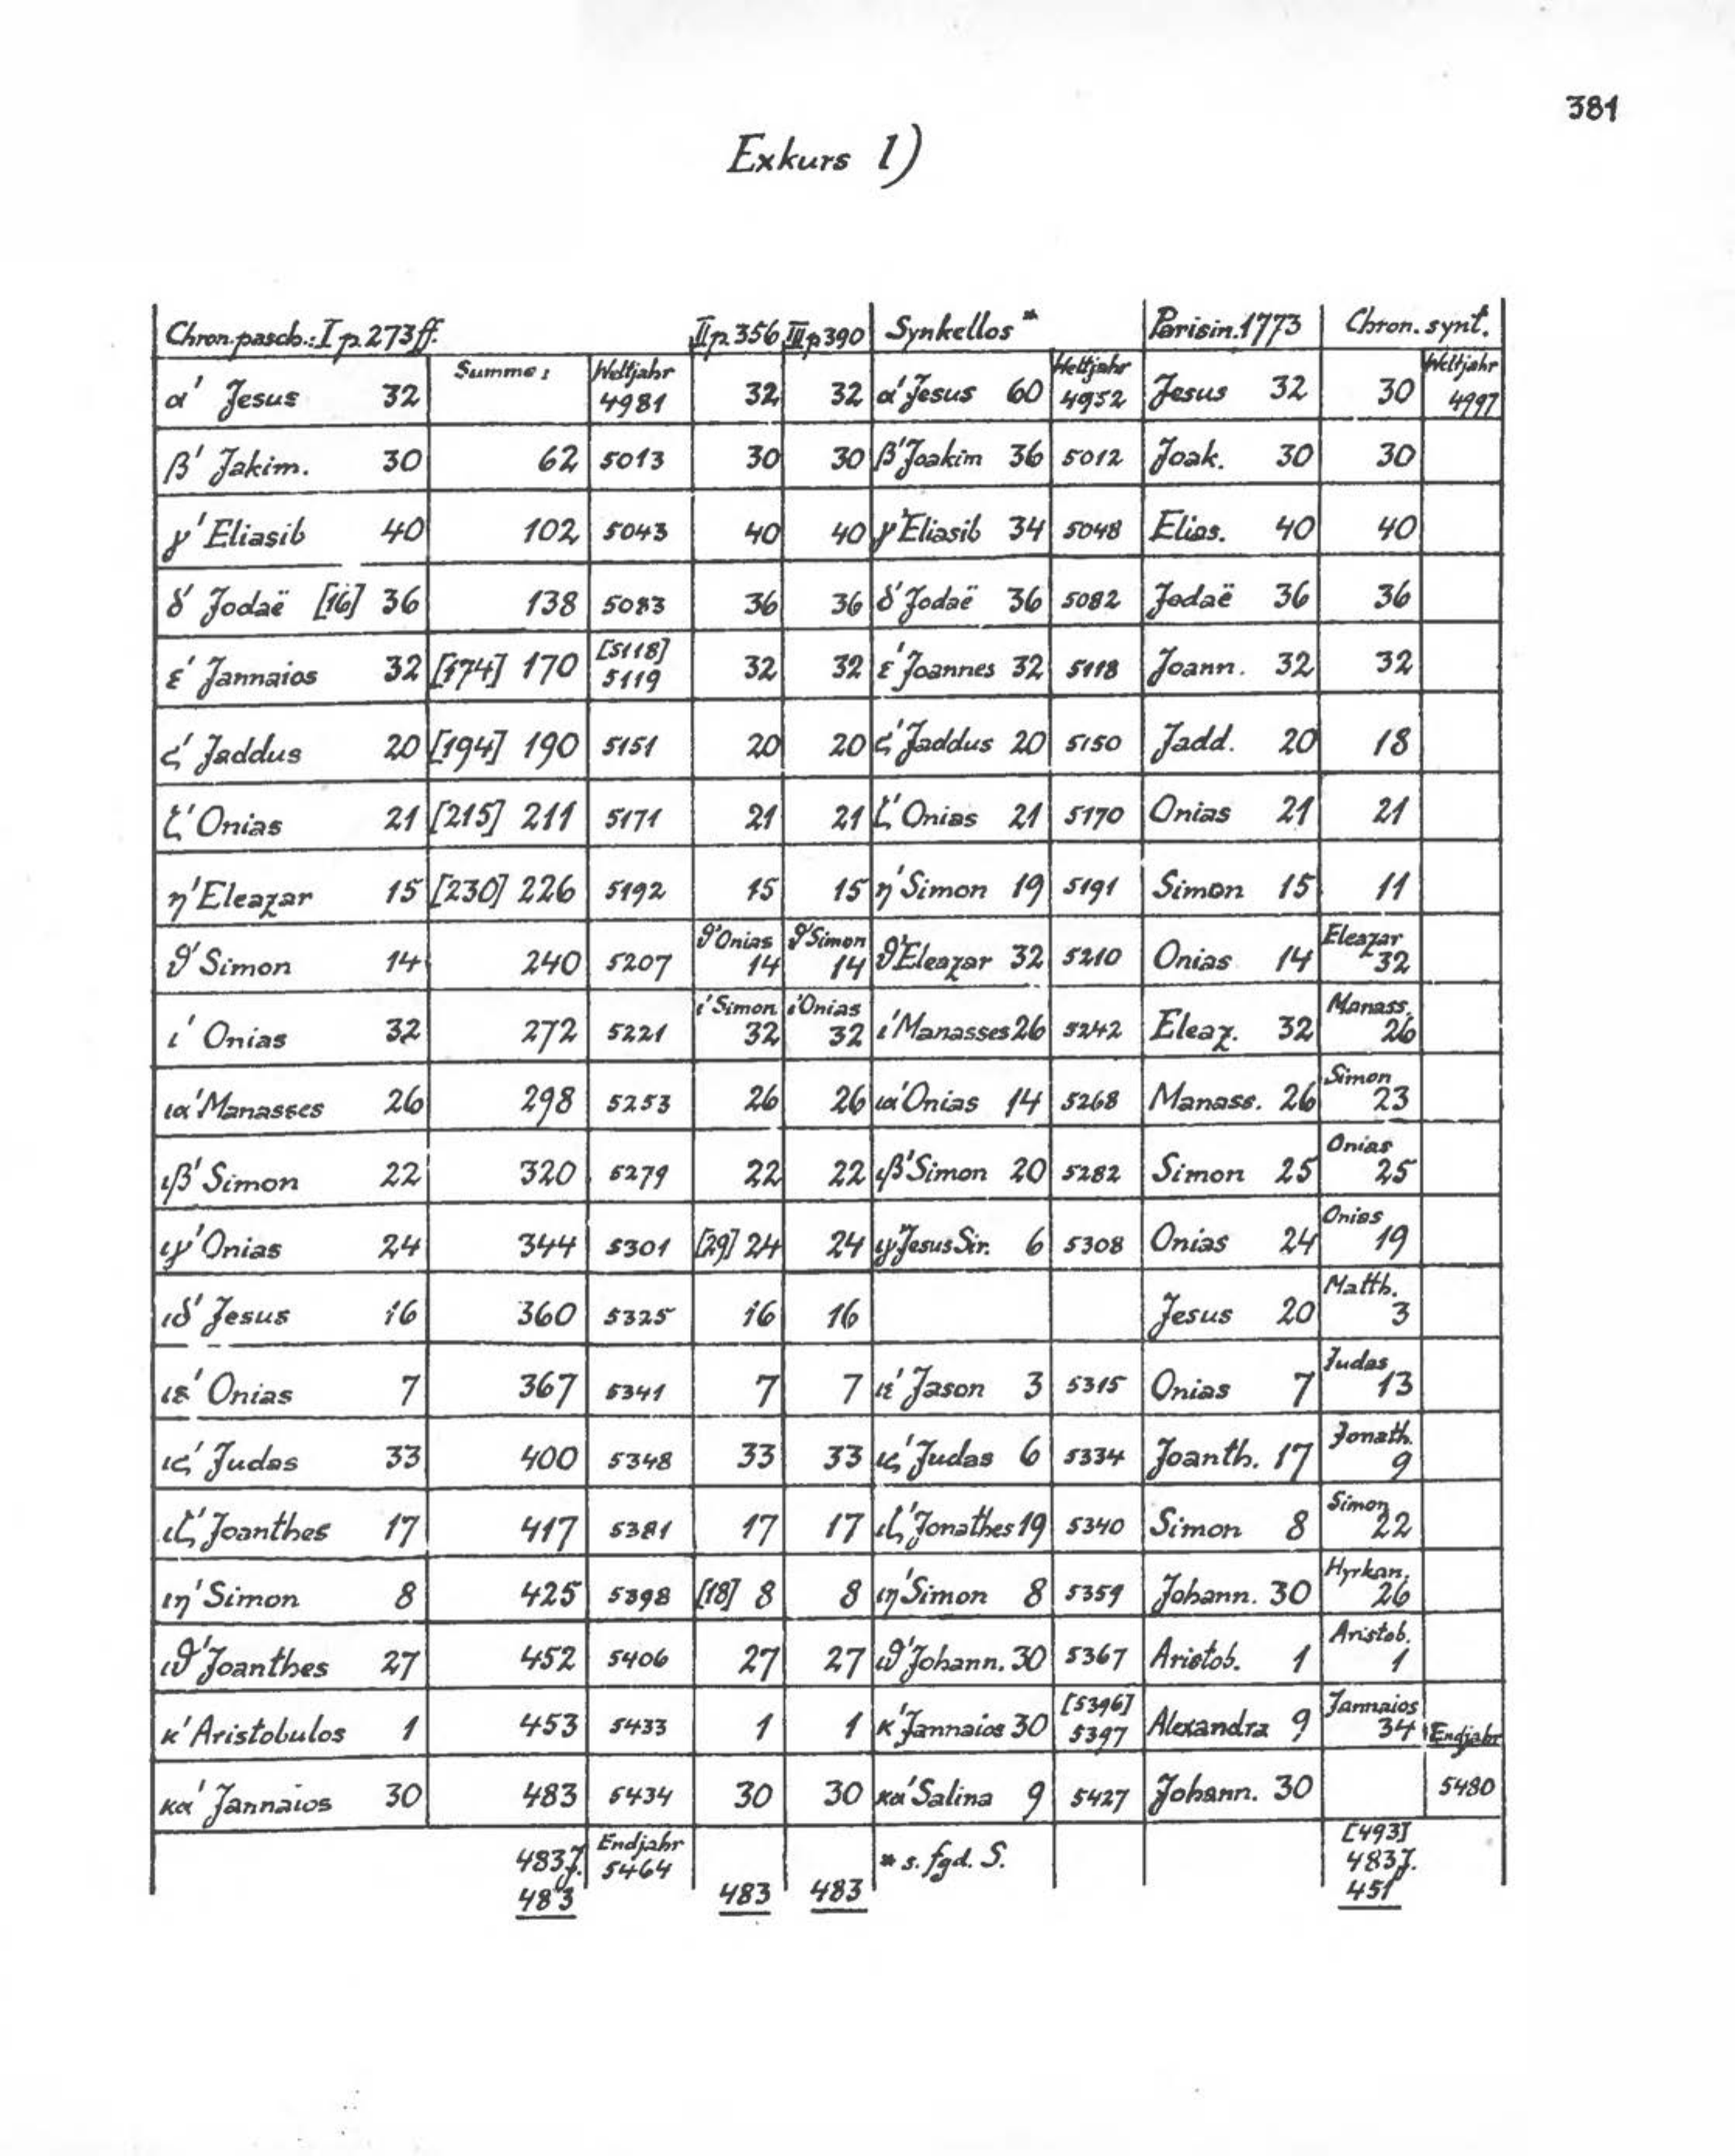 381
Exkurs l)
Chron. pasch.: I p. 273ff. II p. 356 III p 390 Synkellos* Parisin. 1773 Chron. synt.
Summe: Weltjahr Weltjahr Weltjahr
α' Jesus 32 4981 32 32 α' Jesus 60 4952 Jesus 32 30 4997
β' Jakim. 30 62 5013 30 30 β' Joakim 36 5012 Joak. 30 30
γ' Eliasib 40 102 5043 40 40 γ' Eliasib 34 5048 Elias. 40 40
δ' Jodaë [16] 36 138 5083 36 36 δ' Jodaë 36 5082 Jodaë 36 36
[5118]
ε' Jannaios 32 [174] 170 5119 32 32 ε' Joannes 32 5118 Joann. 32 32
ς' Jaddus 20 [194] 190 5151 20 20 ς' Jaddus 20 5150 Jadd. 20 18
ζ' Onias 21 [215] 211 5171 21 21 ζ' Onias 21 5170 Onias 21 21
η' Eleazar 15 [230] 226 5192 15 15 η' Simon 19 5191 Simon 15 11
θ' Onias θ' Simon Eleazar
θ' Simon 14 240 5207 14 14 θ' Eleazar 32 5210 Onias 14 32
ι' Simon ι' Onias Manass.
ι' Onias 32 272 5221 32 32 ι' Manasses 26 5242 Eleaz. 32 26
Simon
ια' Manasses 26 298 5253 26 26 ια' Onias 14 5268 Manass. 26 23
Onias
ιβ' Simon 22 320 5279 22 22 ιβ' Simon 20 5282 Simon 25 25
Onias
ιγ' Onias 24 344 5301 [29] 24 24 ιγ' Jesus Sir. 6 5308 Onias 24 19
Matth.
ιδ' Jesus 16 360 5325 16 16 Jesus 20 3
Judas
ιε' Onias 7 367 5341 7 7 ιε' Jason 3 5315 Onias 7 13
Jonath.
ις' Judas 33 400 5348 33 33 ις' Judas 6 5334 Joanth. 17 9
Simon
ιζ' Joanthes 17 417 5381 17 17 ιζ' Jonathes 19 5340 Simon 8 22
Hyrkan.
ιη' Simon 8 425 5398 [18] 8 8 ιη' Simon 8 5359 Johann. 30 26
Aristob.
ιθ' Joanthes 27 452 5406 27 27 ιθ' Johann. 30 5367 Aristob. 1 1
[5396] Jannaios
κ' Aristobulos 1 453 5433 1 1 κ' Jannaios 30 5397 Alexandra 9 34 Endjahr
κα' Jannaios 30 483 5434 30 30 κα' Salina 9 5427 Johann. 30 5480
Endjahr [493]
483 J. 5464 * s. fgd. S. 483 J.
483 483 483 451